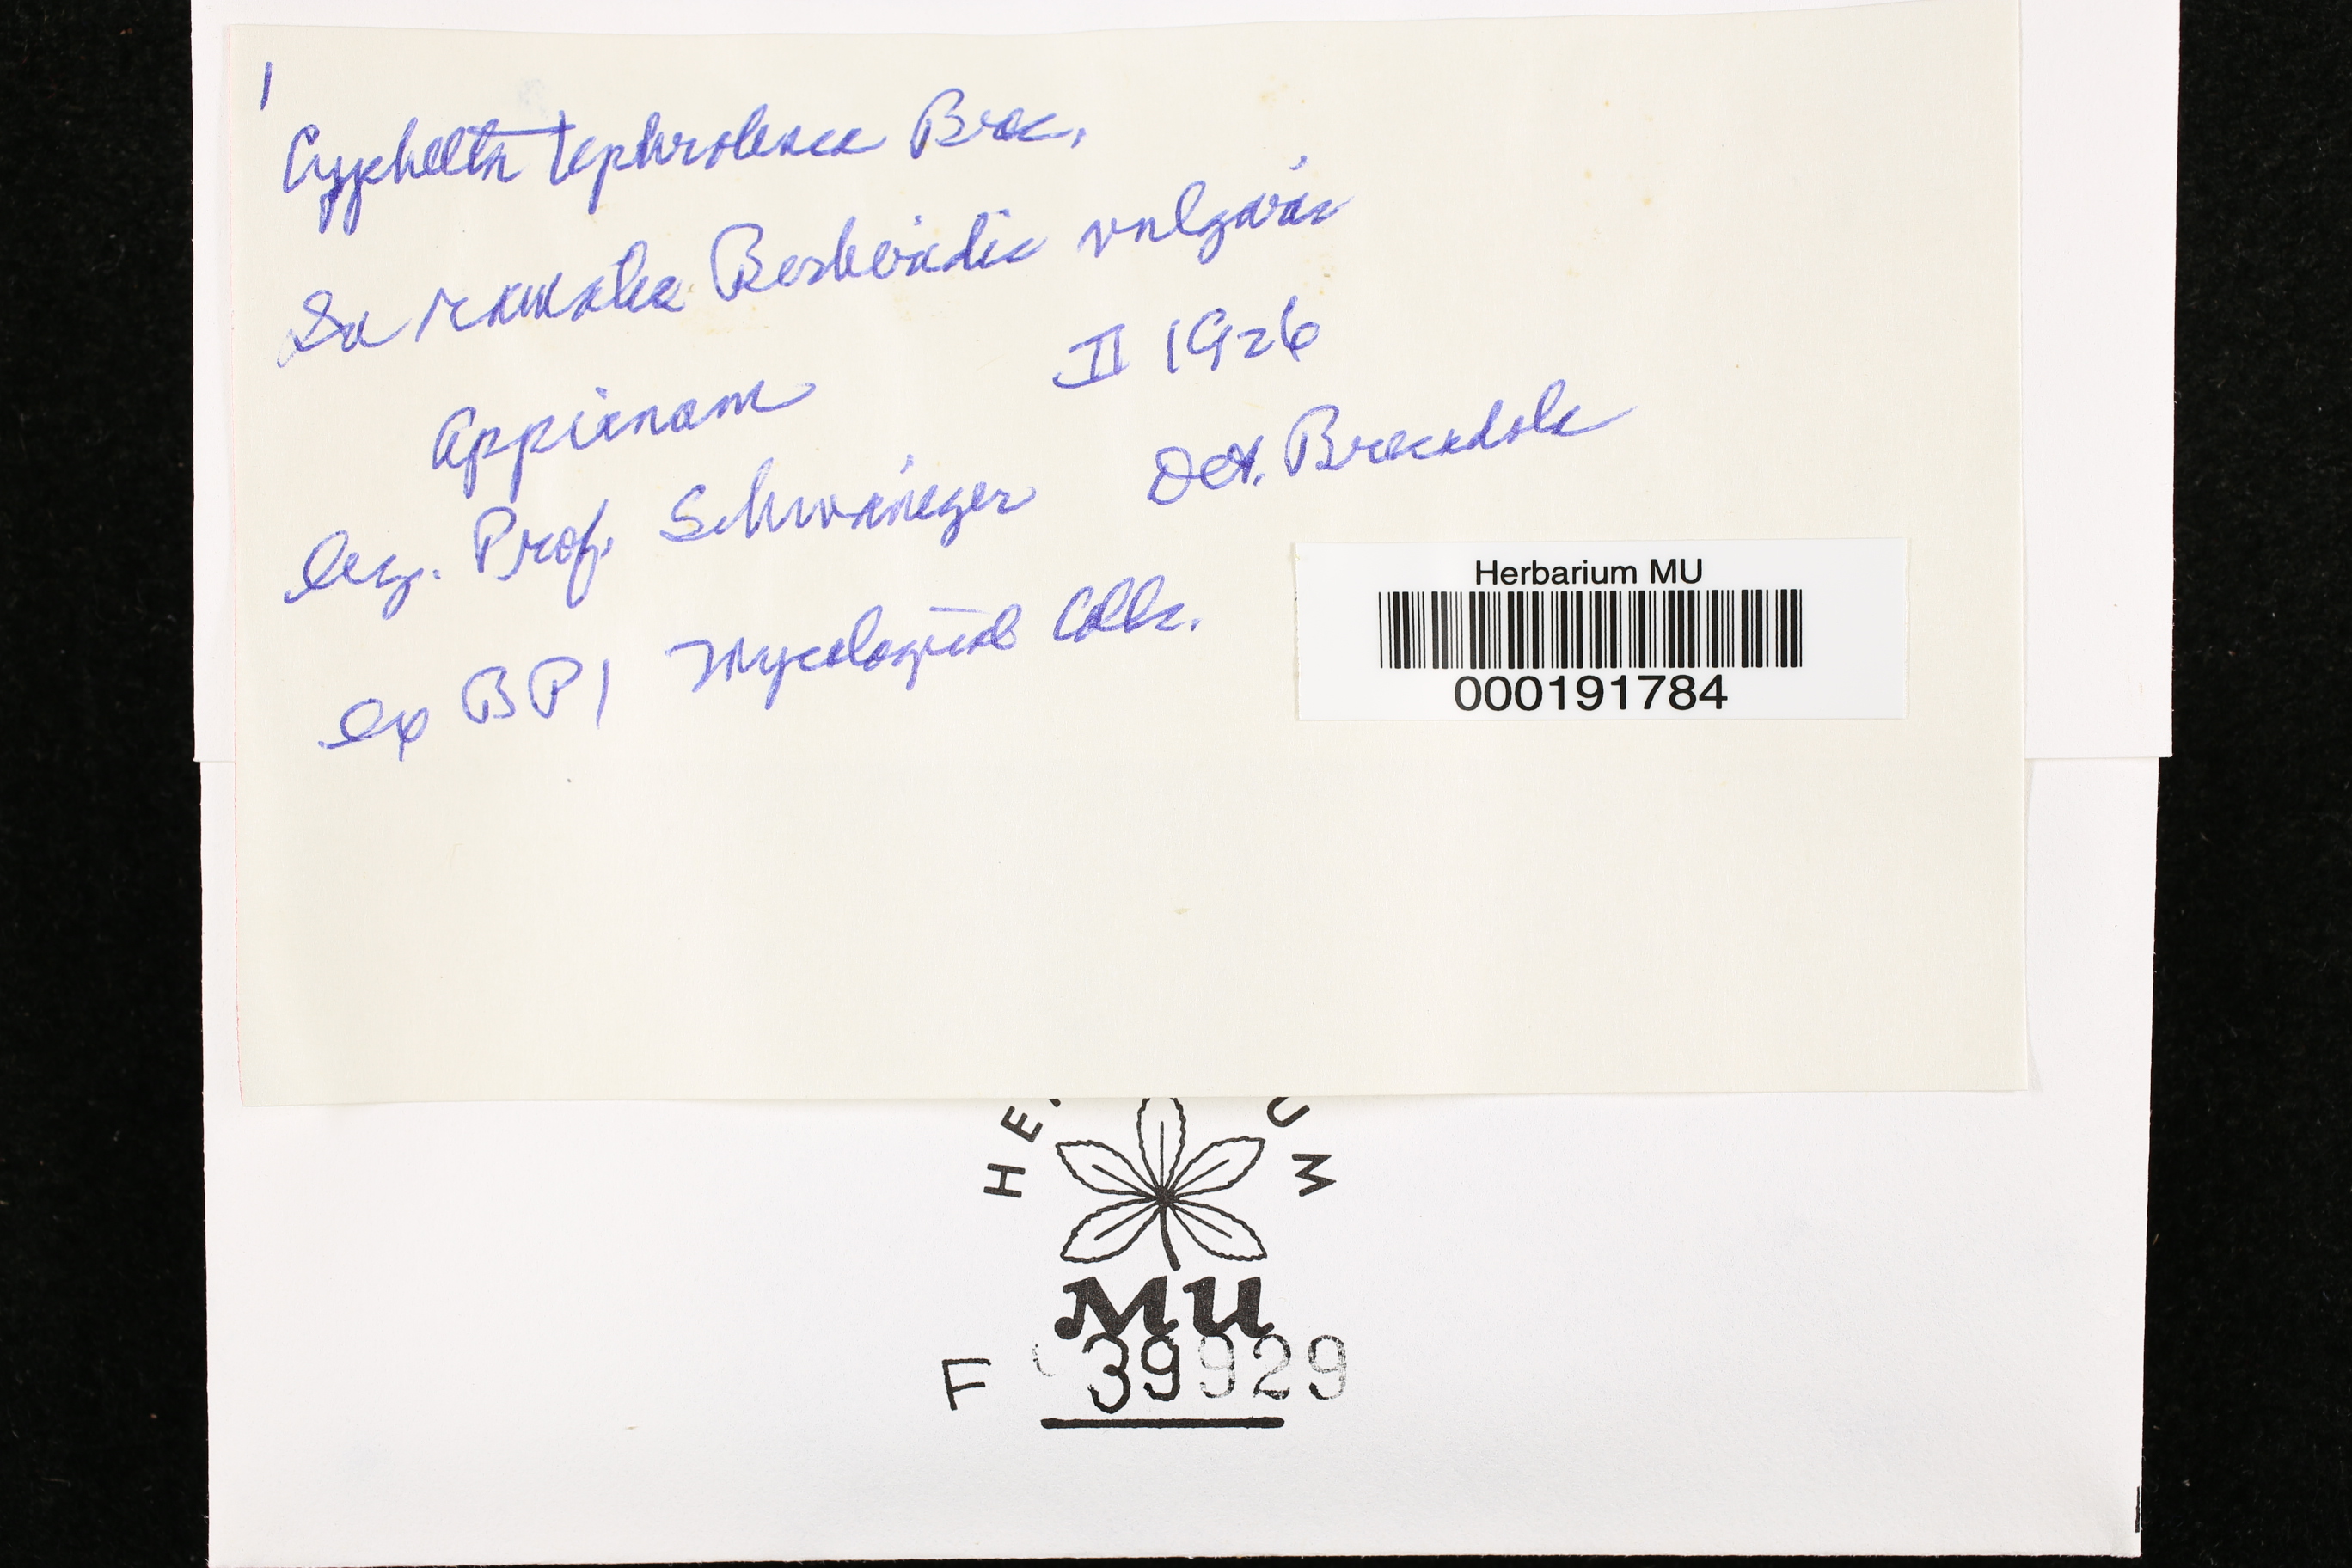 1
Cyphella tephroleuca Bres.
In ramulis Berberidis vulgaris
Appianum II 1926
leg. Prof. Schwaneger Det. Bresadola
ex BPI Mycological Colls.
Herbarium MU
000191784
HE U M
MU
F 39929